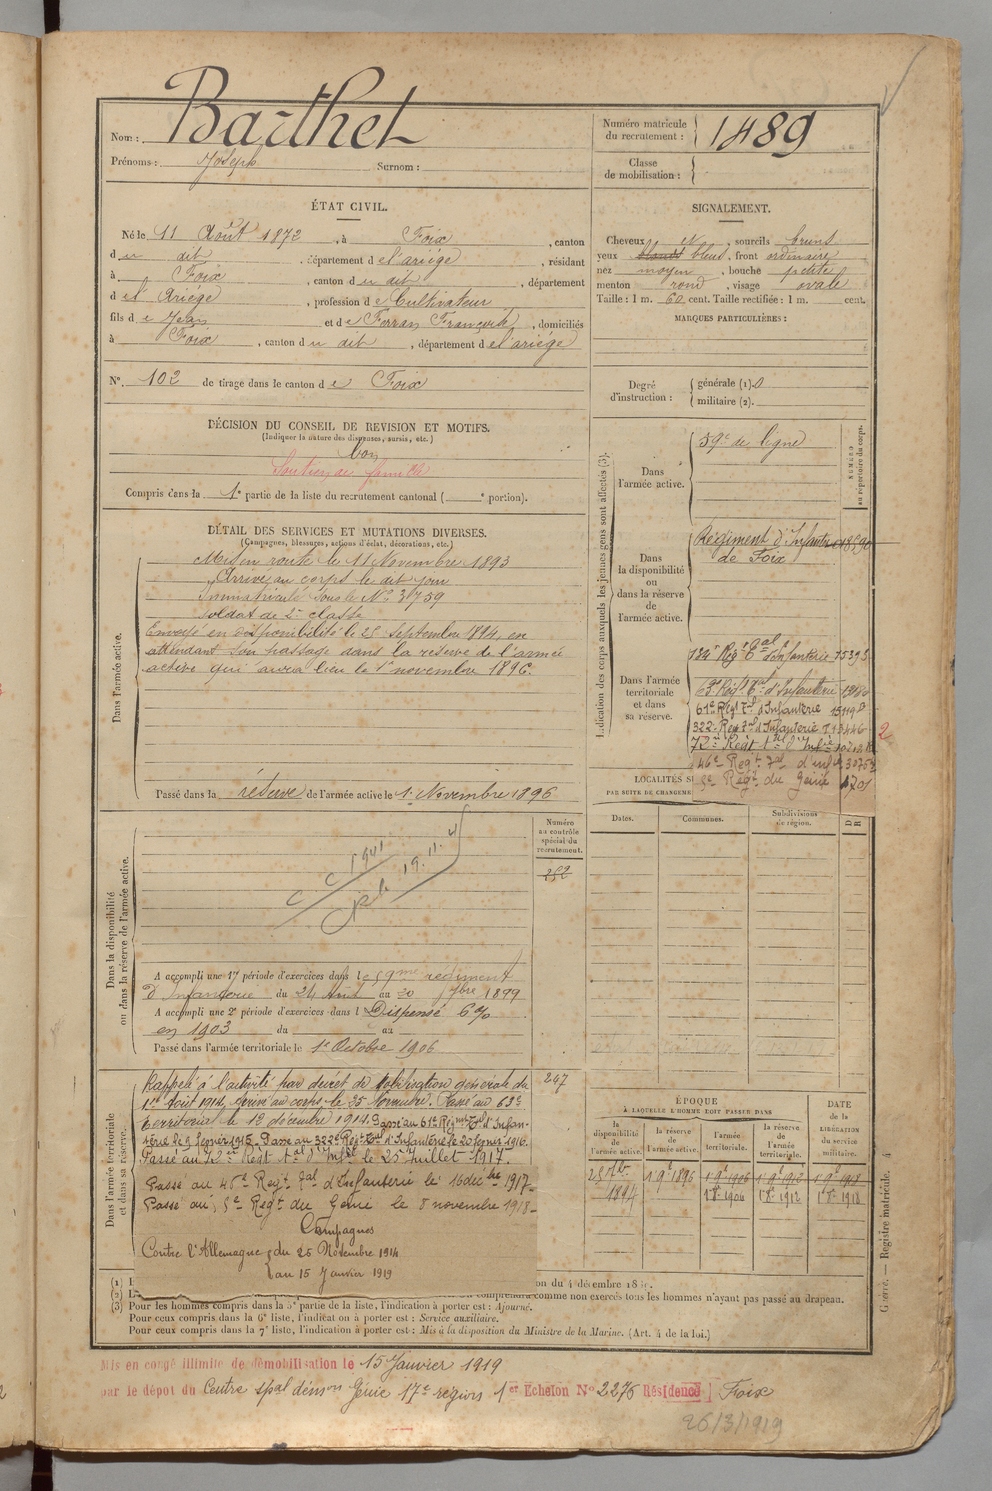 Nom : Barthet
Prénoms : Joseph Surnom :
Numéro matricule du recrutement : 1489
Classe de mobilisation :
ÉTAT CIVIL.
Né le 11 Août 1872, à Foix, canton
du dit, département de l'ariège, résidant
à Foix, canton du dit, département
de l'Ariège, profession de Cultivateur
fils de Jean et de Ferran Françoise, domiciliés
à Foix, canton du dit, département de l'ariège
N° 102 de tirage dans le canton de Foix
SIGNALEMENT.
Cheveux et, sourcils bruns
yeux bleus, front ordinaire
nez moyen, bouche petite
menton rond, visage ovale
Taille : 1 m. 60 cent. Taille rectifiée : 1 m. cent.
MARQUES PARTICULIÈRES :
Degré d'instruction : générale (1). 0
militaire (2).
DÉCISION DU CONSEIL DE REVISION ET MOTIFS.
(Indiquer la nature des dispenses, sursis, etc.)
bon
Soutien de famille
Compris dans la 1e partie de la liste du recrutement cantonal ( e portion).
DÉTAIL DES SERVICES ET MUTATIONS DIVERSES.
(Campagnes, blessures, actions d'éclat, décorations, etc.)
Dans l'armée active.
Mis en route le 11 Novembre 1893
Arrivé au corps le dit jour
Immatriculé sous le N° 3759
soldat de 2e classe
Envoyé en disponibilité le 25 Septembre 1894, en
attendant son passage dans la réserve de l'armée
active qui aura lieu le 1er novembre 1896.
Passé dans la réserve de l'armée active le 1 Novembre 1896
Indication des corps auxquels les jeunes gens sont affectés (3).
NUMÉRO au répertoire du corps.
Dans l'armée active. 59e de ligne
Dans la disponibilité ou dans la réserve de l'armée active.
Régiment d'Infanterie
de Foix
Dans l'armée territoriale et dans sa réserve.
134e Régt Tal d'Infanterie
63e Régt Tal d'Infanterie
61e Régt Tal d'Infanterie
322e Regt Tal d'Infanterie
72e Regt Tal d'Infie
46e Regt Tal d'infie
5e Regt du Génie
2
LOCALITÉS
PAR SUITE DE CHANGEME
Dates. Communes. Subdivisions de région.
D
R
Dans la disponibilité ou dans la réserve de l'armée active.
Numéro au contrôle spécial du recrutement.
252
C C 1901
A accompli une 1re période d'exercices dans le 59me régiment
d'Infanterie du 24 Août au 20 7bre 1899
A accompli une 2e période d'exercices dans l Dispensé 6%
en 1903 du au
Passé dans l'armée territoriale le 1er Octobre 1906
Dans l'armée territoriale et dans sa réserve.
247
Rappelé à l'activité par décret de mobilisation générale du
1er Août 1914, Arrivé au corps le 25 Novembre. Passé au 63e
territorial le 12 décembre 1914. Passé au 61e Régiment Tal d'Infan-
terie le 9 février 1915. Passé au 322e Régt Tal d'Infanterie le 20 février 1916.
Passé au 72e Régt Tal d'Infie le 25 Juillet 1917.
Passé au 46e Regt Tal d'Infanterie le 16 décbre 1917
Passé au 5e Regt du Génie le 8 novembre 1918
Campagnes
Contre l'Allemagne du 25 Novembre 1914
au 15 Janvier 1919
ÉPOQUE
À LAQUELLE L'HOMME DOIT PASSER DANS
la disponibilité de l'armée active. la réserve de l'armée active. l'armée territoriale. la réserve de l'armée territoriale.
DATE de la LIBÉRATION du service militaire.
1894 1 9e 1896 1 9e 1906 1 9e 1912 1 9e 1918
1 8e 1906 1 8e 1912 1 8e 1918
Gucrcé. — Registre matricule. 4
(1) on du 4 décembre 18
(2) comprendra comme non exercés tous les hommes n'ayant pas passé au drapeau.
(3) Pour les hommes compris dans la 5e partie de la liste, l'indication à porter est : Ajourné.
Pour ceux compris dans la 6e liste, l'indication à porter est : Service auxiliaire.
Pour ceux compris dans la 7e liste, l'indication à porter est : Mis à la disposition du Ministre de la Marine. (Art. 4 de la loi.)
Mis en congé illimité de démobilisation le 15 Janvier 1919
par le dépôt du Centre spal démon Génie 17e région 1er Échelon N° 2276 Résidence Foix
26/3/1919